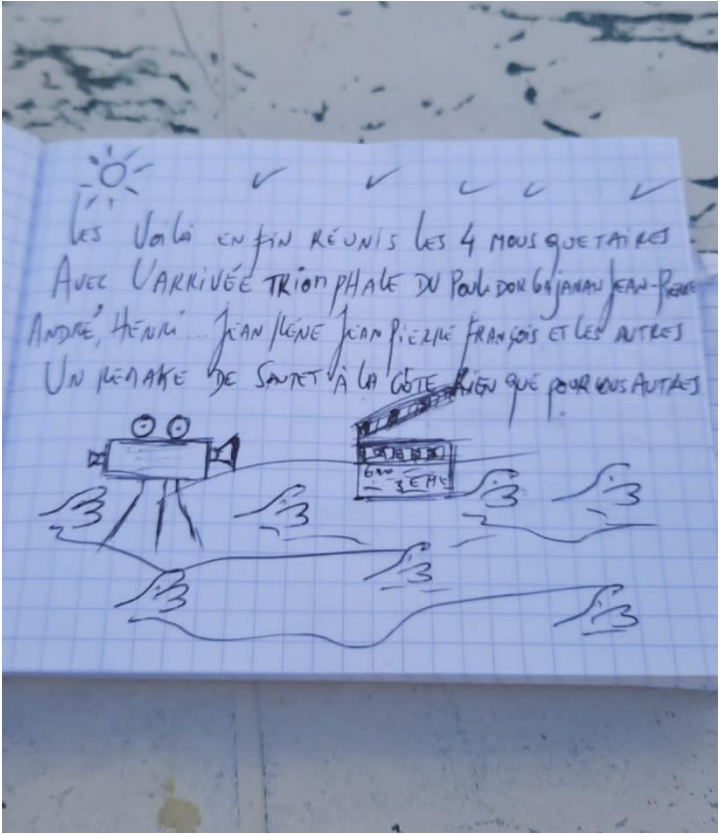 LES VOILÀ ENFIN RÉUNIS LES 4 MOUSQUETAIRES
AVEC L'ARRIVÉE TRIOMPHALE DU POULIDOR GAJANAN JEAN-PIERRE
ANDRÉ, HENRI.. JEAN RENÉ JEAN PIERRE FRANÇOIS ET LES AUTRES
UN REMAKE DE SAUTET À LA CÔTE RIEN QUE POUR VOUS AUTRES
3EME